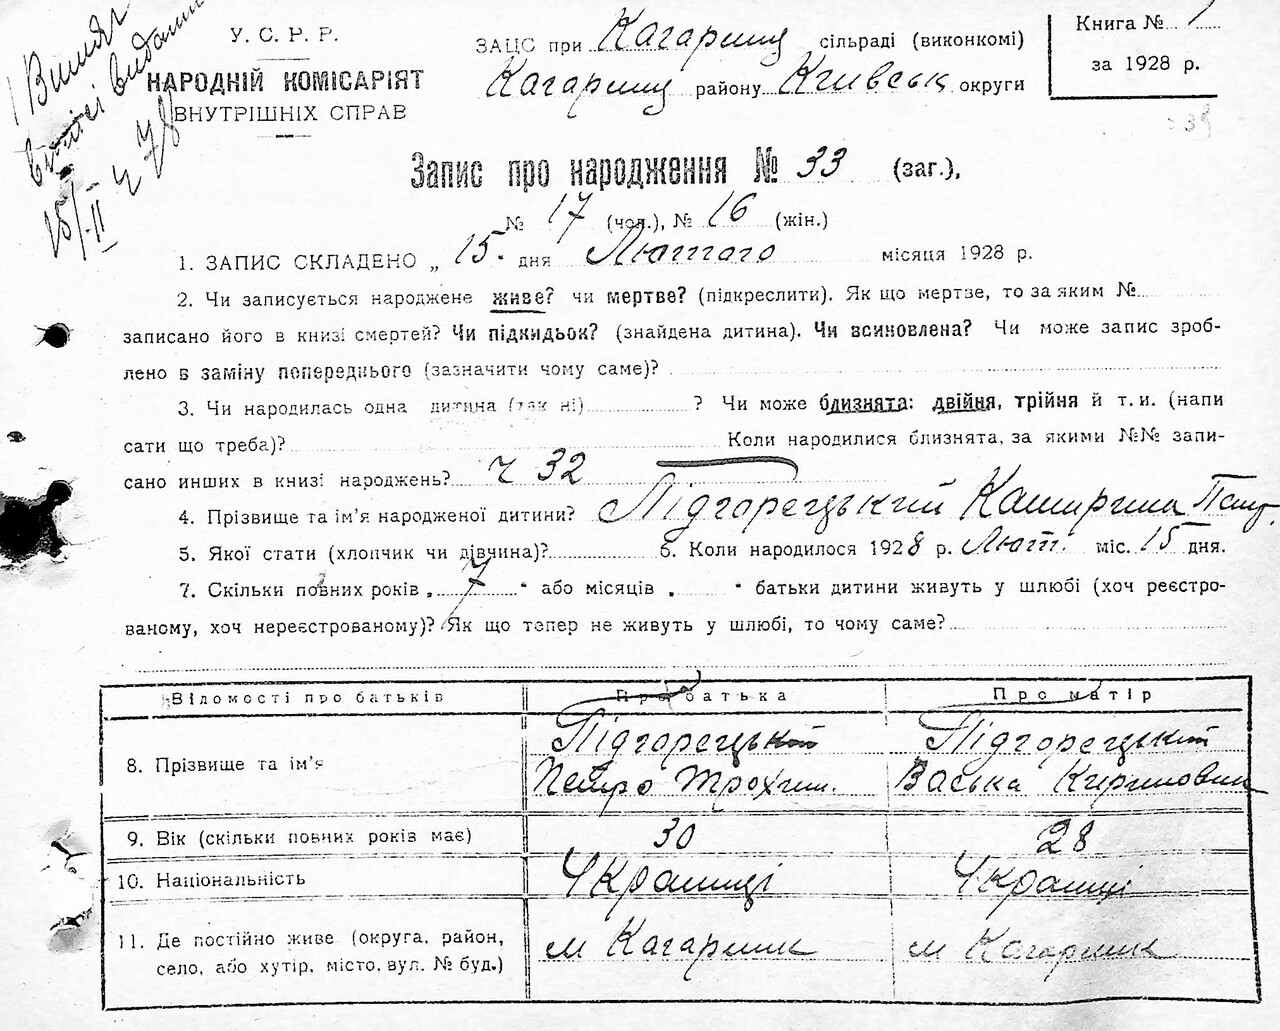 Випис
витязі видани
15/II ч 78
У. С. Р. Р.
НАРОДНІЙ КОМІСАРІЯТ
ВНУТРІШНІХ СПРАВ
ЗАЦС при Кагарлиц сільраді (виконкомі)
Кагарлиц району Київськ округи
Книга № 1
за 1928 р.
Запис про народження № 33 (заг.),
№ 17 (чол.), № 16 (жін.)
1. ЗАПИС СКЛАДЕНО „ 15. дня Лютого місяця 1928 р.
2. Чи записується народжене живе? чи мертве? (підкреслити). Як що мертве, то за яким №
записано його в книзі смертей? Чи підкидьок? (знайдена дитина). Чи всиновлена? Чи може запис зроб-
лено в заміну попереднього (зазначити чому саме)?
3. Чи народилась одна дитина (так ні) ? Чи може близнята: двійня, трійня й т. и. (напи
сати що треба)? Коли народилися близнята, за якими №№ запи-
сано инших в книзі народжень? ч 32
4. Прізвище та ім'я народженої дитини? Підгорецький Катерина Петр.
5. Якої стати (хлопчик чи дівчина)? 6. Коли народилося 1928 р. Лют. міс. 15 дня.
7. Скільки повних років „ 7 " або місяців „ " батьки дитини живуть у шлюбі (хоч реєстро-
ваному, хоч нереєстрованому)? Як що тепер не живуть у шлюбі, то чому саме?
Відомості про батьків Про батька Про матір
8. Прізвище та ім'я Підгорецький Петро Трохим. Підгорецький Васька Кириловни
9. Вік (скільки повних років має) 30 28
10. Національність Украінці Украінці
11. Де постійно живе (округа, район, м Кагарлик м Кагарлик
село, або хутір, місто, вул. № буд.)